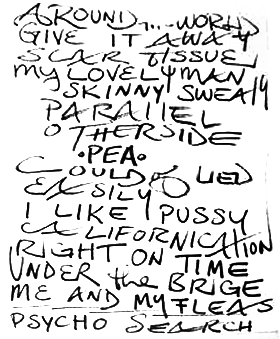 AROUND....WORLD
GIVE IT AWAY
SCAR TISSUE
MY LOVELY MAN
SKINNY SWEATY
PARALLEL
OTHERSIDE
•PEA•
COULD of LIED
EASILY
I LIKE PUSSY
CALIFORNICATION
RIGHT ON TIME
UNDER the BRIGE
ME AND MY FLEAS
PSYCHO SEARCH